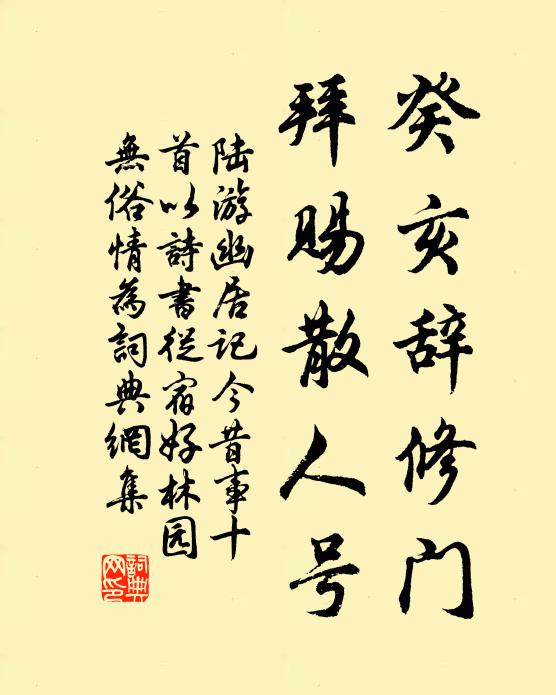 癸亥辞修门
拜赐散人号
陆游幽居记今昔事十
首以詩書從宿好林园
無俗情為詞典網集
詞典
网印